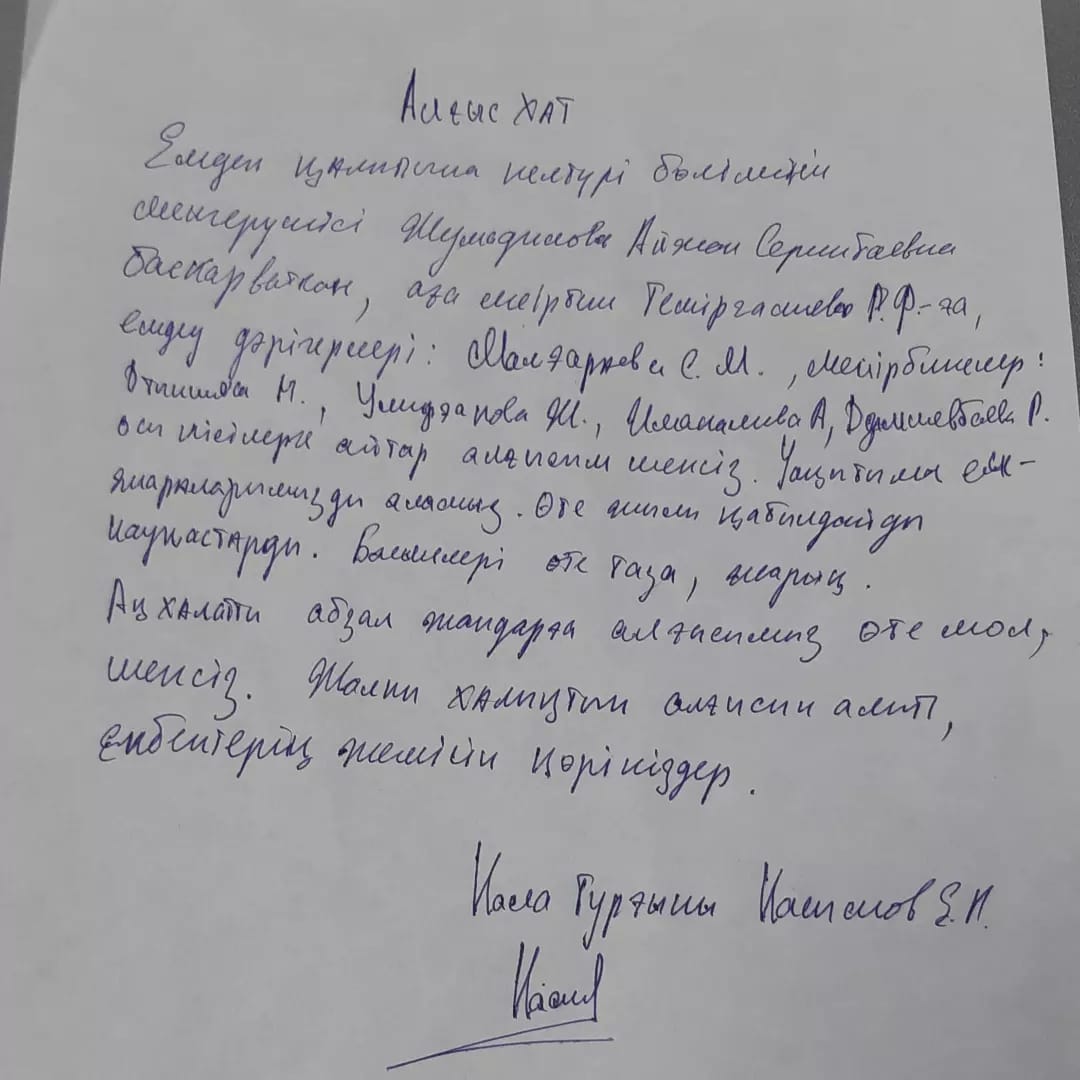 Алғыс хат
Емдеп қалпына келтурі бөлімінің
меңгерушісі Жумадилова Айжан Серикбаевна
басқарватқан, аға мейрбике Теміргалиева Р.Ф-ға,
емдеу дәрігерлері: С.М., мейірбикелер:
М., Ж., Иманалиева А, Р.
осы кісілерге айтар алғысым шексіз. Уақытымен ем-
шараларымызды аламыз. Өте жылы қабылдайды
науқастарды. Бөлмелері өте таза, жарық.
Ақ халатты абзал жандарға алғысымыз өте мол,
шексіз. Жалпы халықтың алғысын алып,
еңбектерің жемісін көріңіздер.
Қала тұрғыны Касымов Е.К.